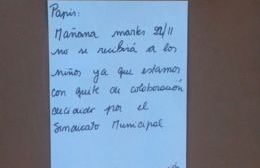 Papis:
Mañana martes 22/11
no se recibirá a los
niños ya que estamos
con quite de colaboración
decidido por el
Sindicato Municipal